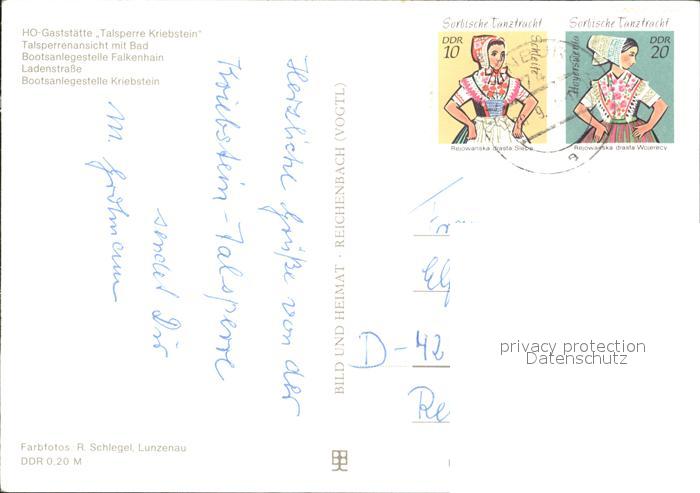 HO-Gaststätte „Talsperre Kriebstein"
Talsperrenansicht mit Bad
Bootsanlegestelle Falkenhain
Ladenstraße
Bootsanlegestelle Kriebstein
Herzliche Grüße von der
Kriebstein-Talsperre
sendet Dir
M.
BILD UND HEIMAT · REICHENBACH (VOGTL)
Sorbische Tanztracht
DDR
10
Schleife
Rejowanska drasta Slepo
Sorbische Tanztracht
DDR
20
Hoyerswerda
Rejowanska drasta Wojerecy
D-42
privacy protection
Datenschutz
Farbfotos: R. Schlegel, Lunzenau
DDR 0,20 M